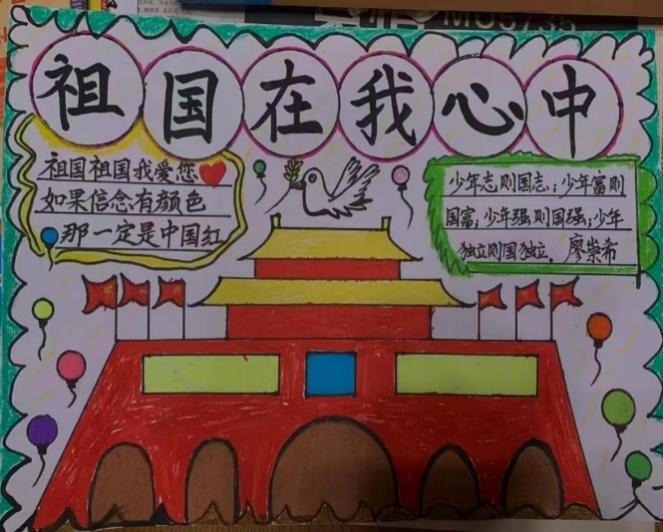 祖国在我心中
祖国祖国我爱您
如果信念有颜色
那一定是中国红
少年志则国志；少年富则
国富；少年强则国强；少年
独立则国独立。廖崇希